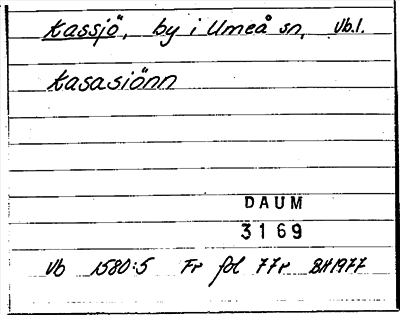 Kassjö, by i Umeå sn, Vb.l.
Kasasiönn
DAUM
3169
Vb 1580:5 Fr fol 77r BH1977